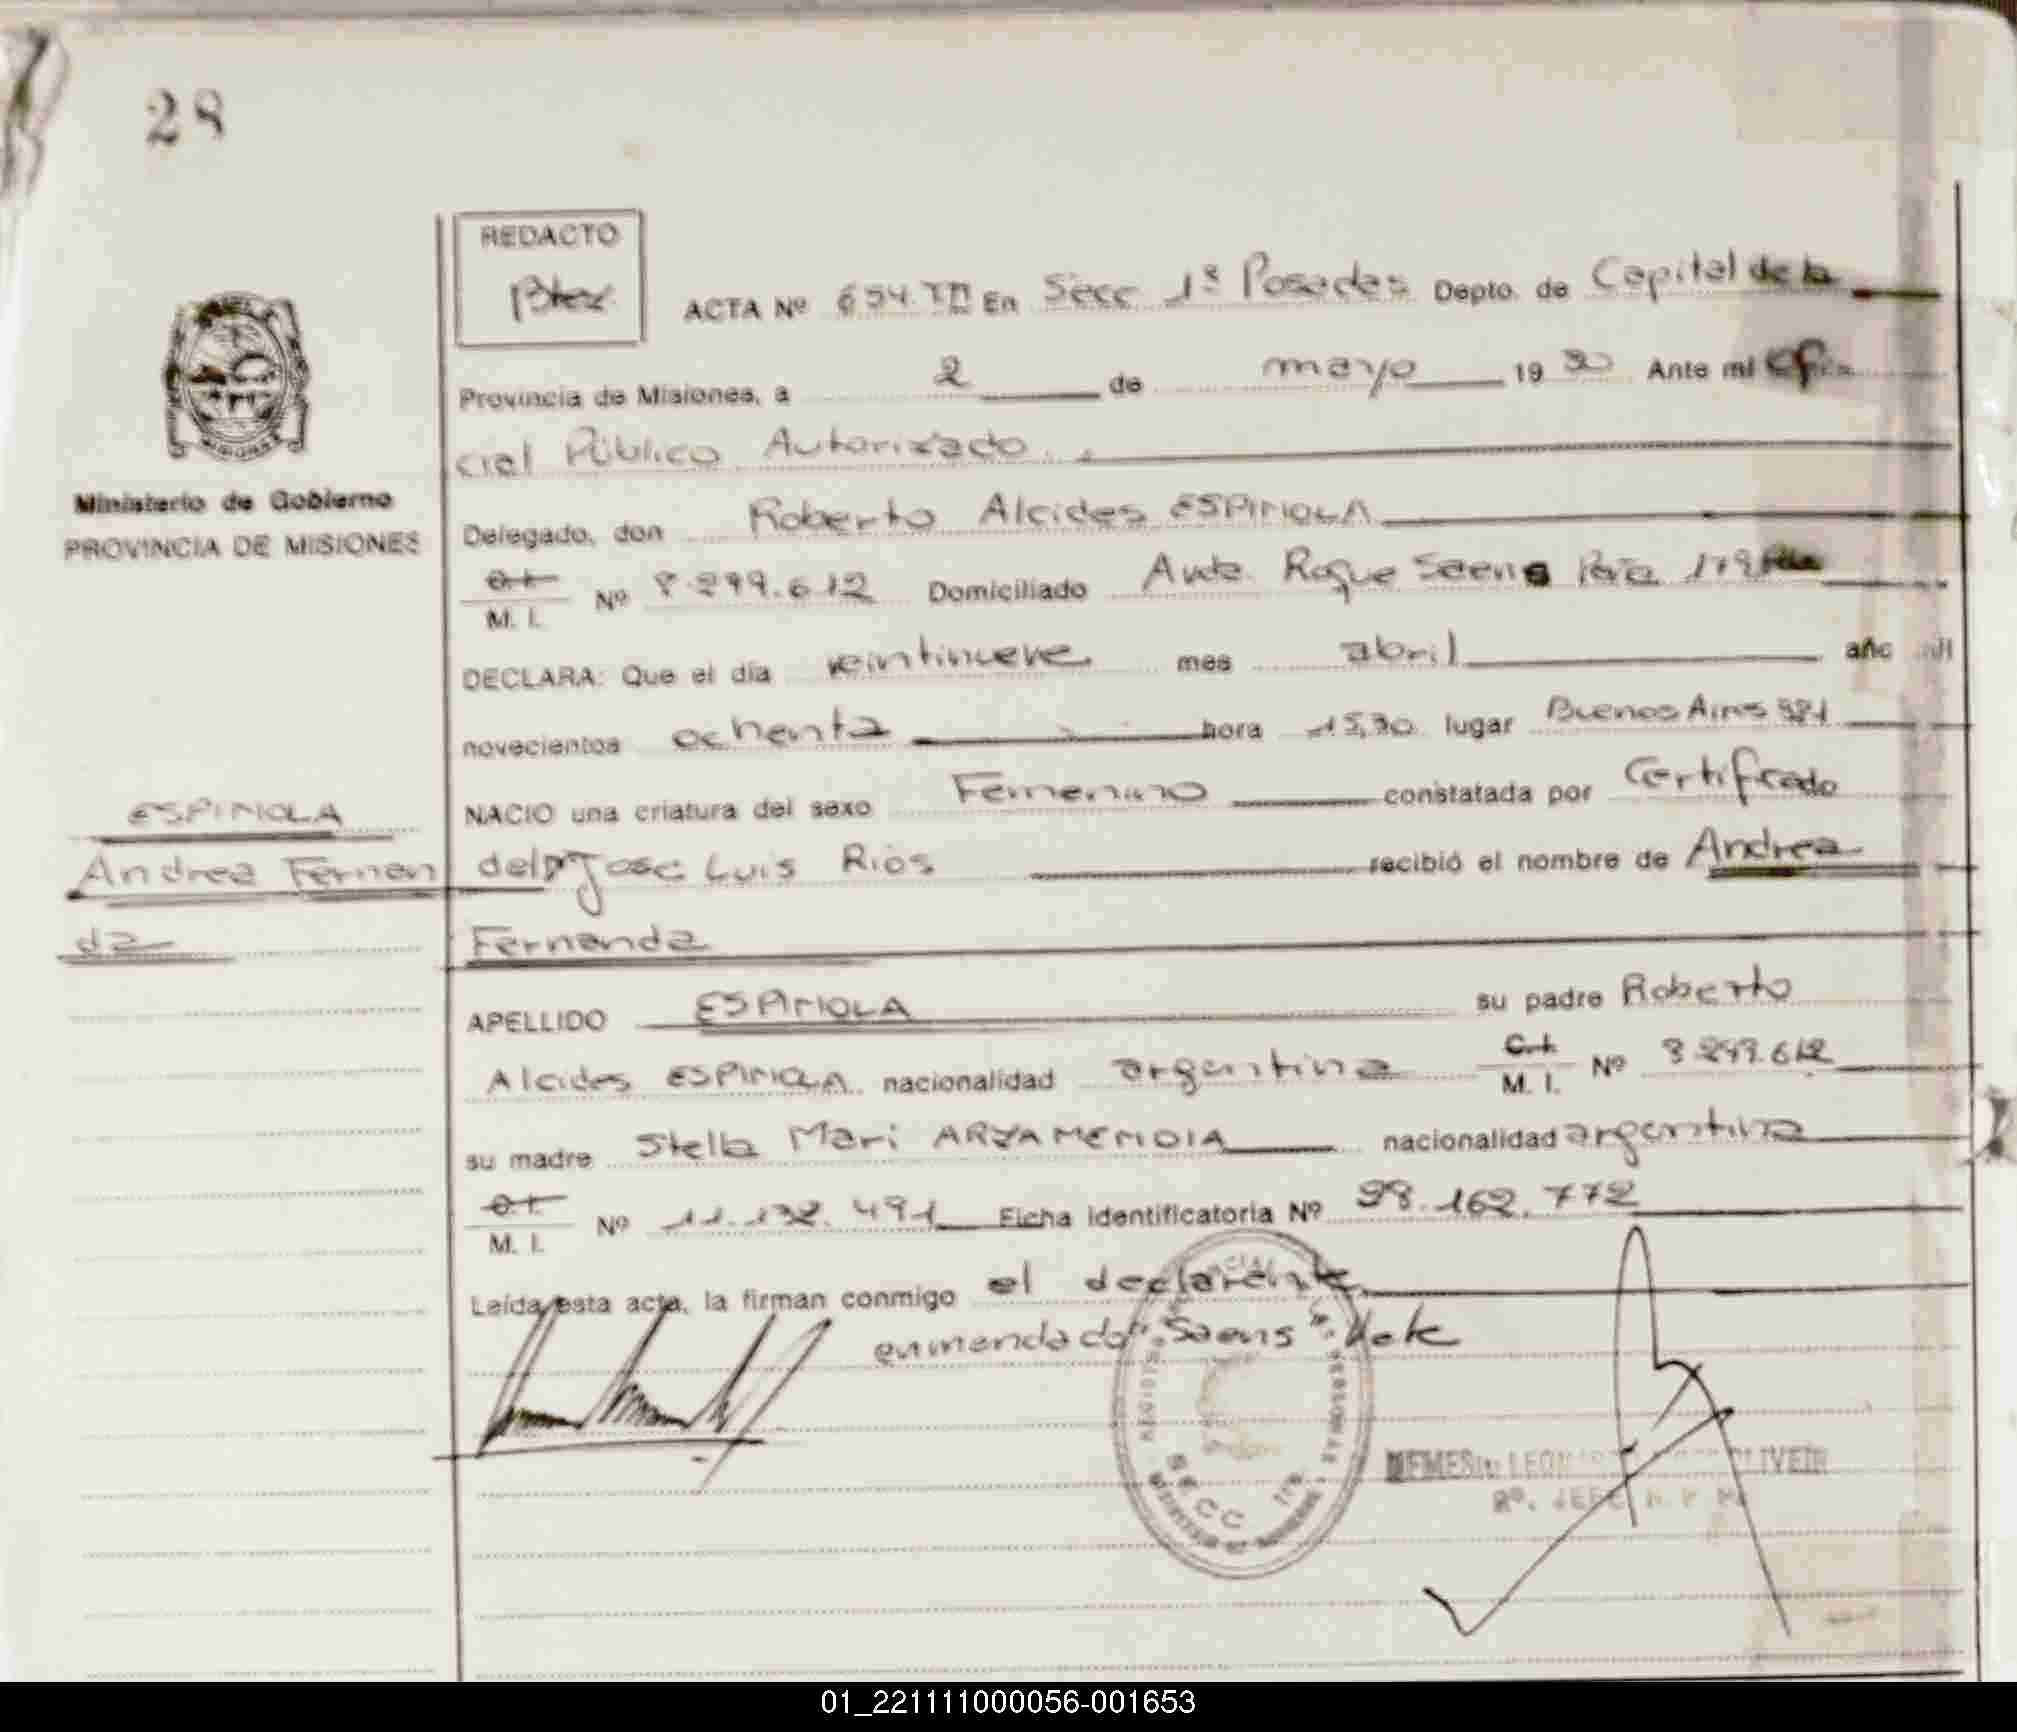 28
REDACTO
ACTA Nº 654. TII En Secc 1ª Posadas Depto. de Capital de la
Provincia de Misiones, a 2 de mayo 19 80 Ante mi Ofi
cial Público Autorizado
Ministerio de Gobierno
PROVINCIA DE MISIONES
Delegado, don Roberto Alcides ESPINOLA
C.I. M. I. Nº 8.299.612 Domiciliado Avda. Roque Saens Peña
DECLARA: Que el día veintinueve mes abril año mil
novecientos ochenta hora 15,30 lugar Buenos Aires
NACIO una criatura del sexo Femenino constatada por Certificado
ESPINOLA
Andrea Fernan
da
del Dr Jose Luis Rios recibió el nombre de Andrea
Fernanda
APELLIDO ESPINOLA su padre Roberto
Alcides ESPINOLA nacionalidad argentina C.I. M. I. Nº 8.299.612
su madre Stella Mari ARZAMENDIA nacionalidad argentina
C.I. M. I. Nº 11.132.491 Ficha identificatoria Nº 98.162.772
Leída esta acta, la firman conmigo el declarante
enmendado "Saens". Vale
SECC
NEMESIO
2º. JEFE R P P
01_221111000056-001653